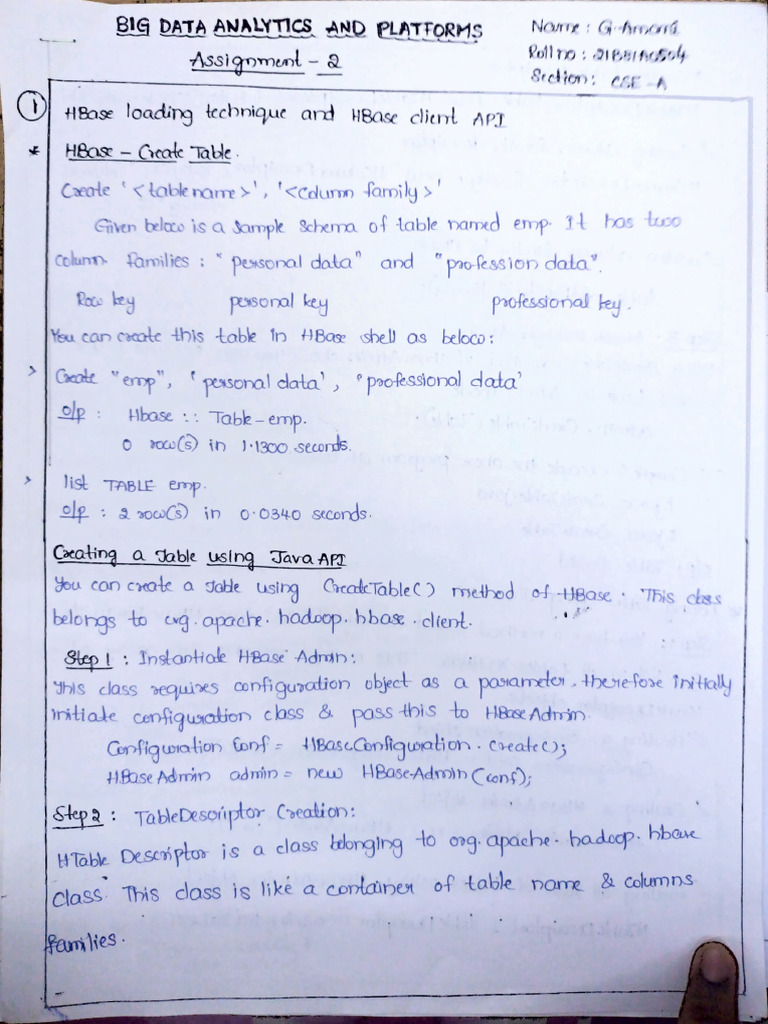 BIG DATA ANALYTICS AND PLATFORMS
Name : G. Amani
Assignment - 2
Roll no :
Section : CSE - A
1
HBase loading technique and HBase client API
* HBase - Create Table.
Create '<table name>', '<column family>'
Given below is a sample schema of table named emp. It has two
column families : "personal data" and "profession data".
Row key personal key professional key.
You can create this table in HBase shell as below:
> Create "emp", 'personal data', 'professional data'
o/p : Hbase :: Table - emp.
0 row(s) in 1.1300 seconds.
> list TABLE emp.
o/p : 2 row(s) in 0.0340 seconds.
Creating a Table using Java API
You can create a Table using CreateTable() method of HBase. This class
belongs to org.apache.hadoop.hbase.client.
Step 1 : Instantiate HBase Admin.
This class requires configuration object as a parameter, therefore initially
initiate configuration class & pass this to HBaseAdmin.
Configuration Conf = HBaseConfiguration.create();
HBaseAdmin admin = new HBase-Admin(conf);
Step 2 : TableDescriptor Creation:
HTable Descriptor is a class belonging to org.apache.hadoop.hbase
class. This class is like a container of table name & columns
families.